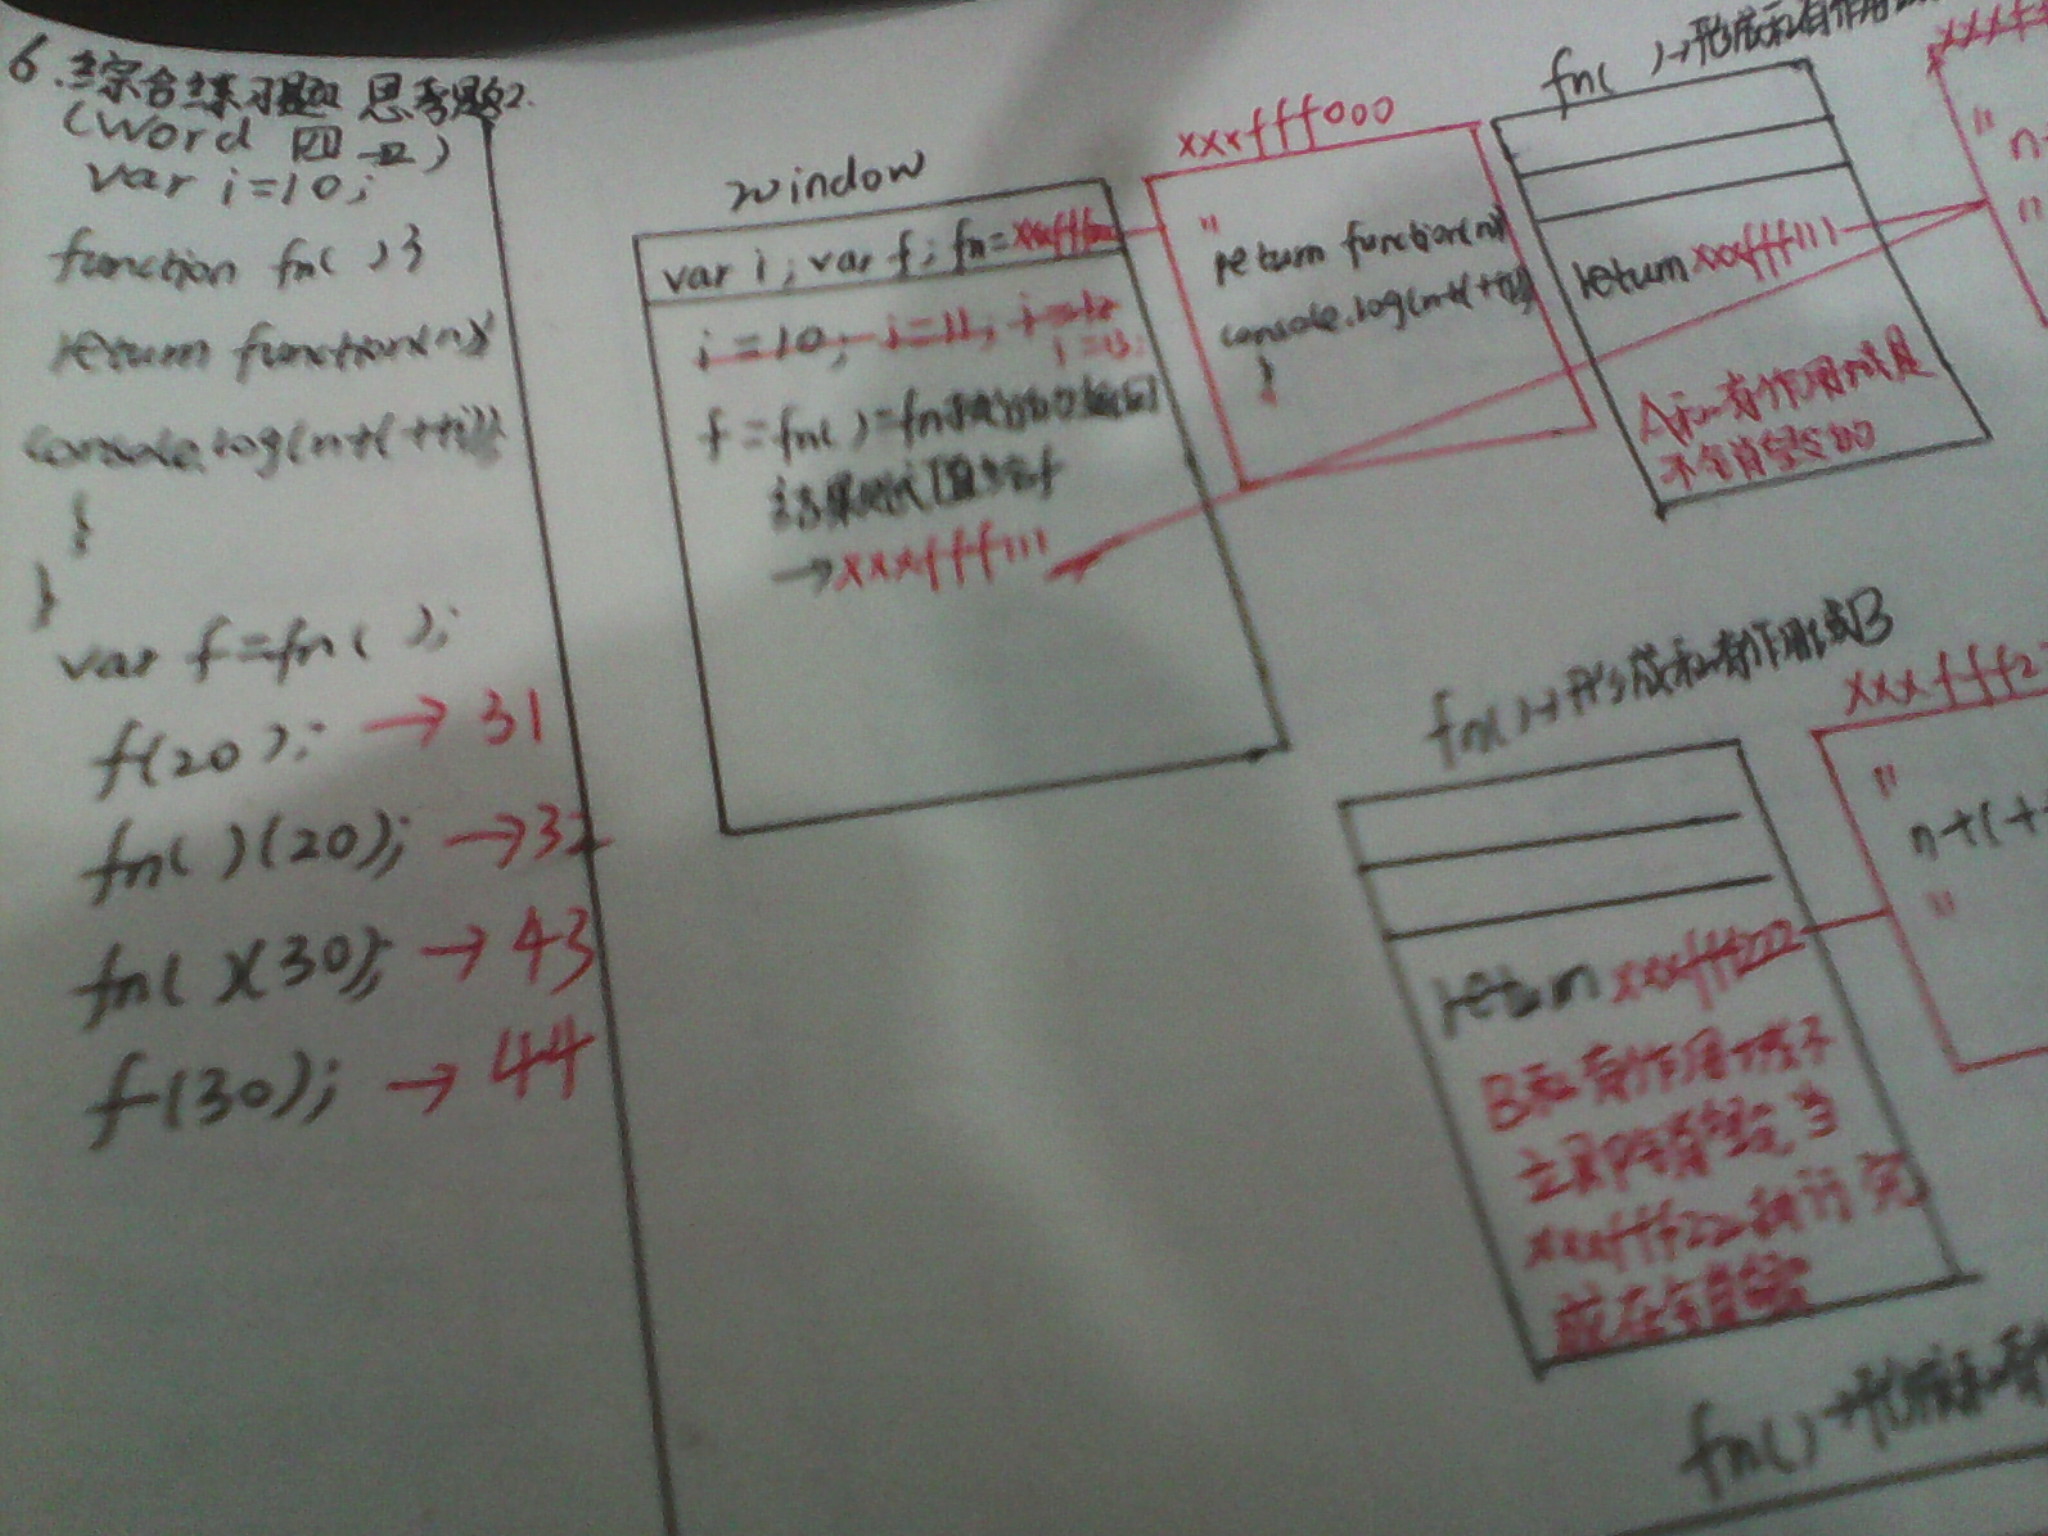 6.综合练习题 思考题2.
(word 四-2)
var i=10;
function fn( ){
return function(n){
console.log(n+(++i));
}
}
var f=fn( );
f(20); → 31
fn( )(20); →32
fn( )(30); → 43
f(30); → 44
window
var i; var f; fn=xxxfff000
i=10; i=11; i=12
i=13;
f=fn( )=fn执行的返回
结果赋值给f
→xxxfff111
xxxfff000
"
return function(n){
console.log(n+(++i))
}
fn( )→形成私有作用域
return xxxfff111
A私有作用域是
不会销毁的
"
n+
"
fn( )→形成私有作用域B
return xxxfff222
B私有作用域不
立即销毁,当
xxxfff222执行完
xxxfff2
"
n+(+
"
fn()→形成私有